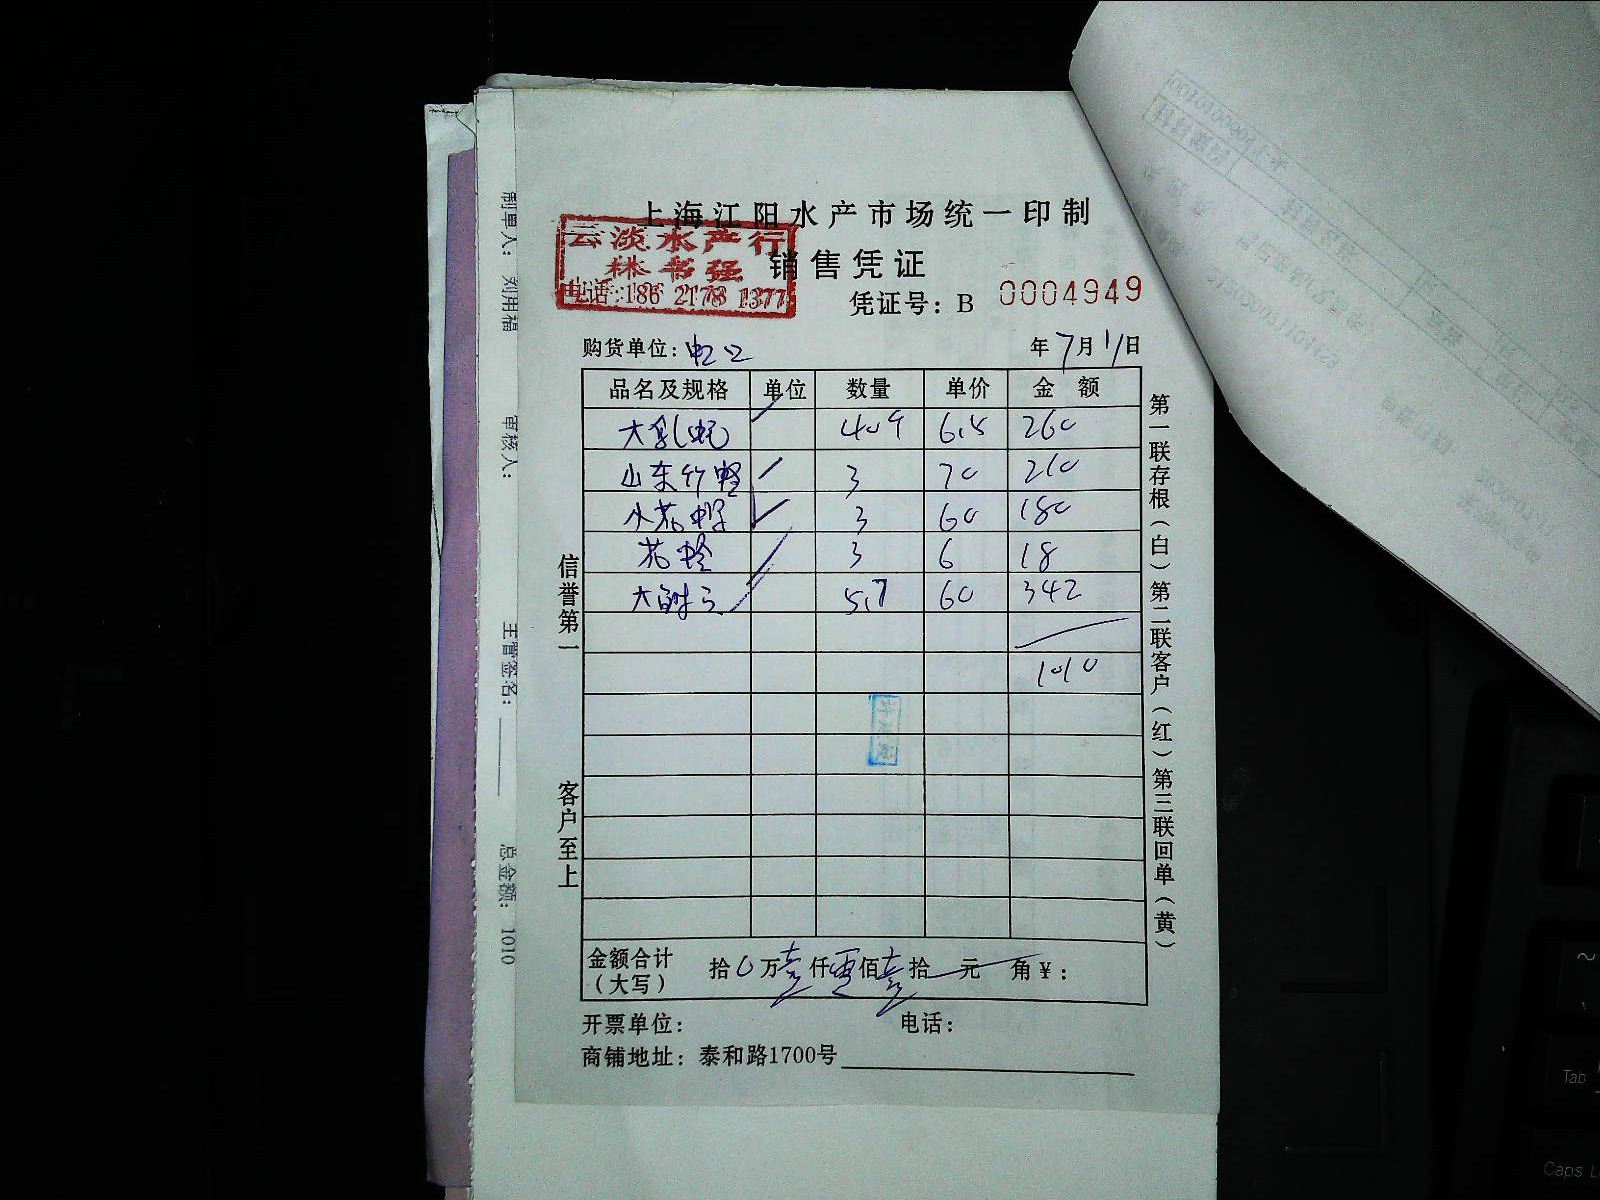 上海江阳水产市场统一印制
云淡水产行
林书强
电话:186 2178 1377
销售凭证
凭证号：B 0004949
购货单位：虹口
年7月11日
品名及规格 单位 数量 单价 金额
大乳蚝 40只 6.5 260
山东竹蛏 3 70 210
小花螺 3 60 180
花蛤 3 6 18
大 5.7 60 342
1010
金额合计（大写） 拾0万壹仟零佰壹拾元角¥：
开票单位： 电话：
商铺地址：泰和路1700号
信誉第一 客户至上
第一联存根（白）第二联客户（红）第三联回单（黄）
制单人： 刘用福 审核人： 主管签名： 总金额： 1010
Tab
Caps L